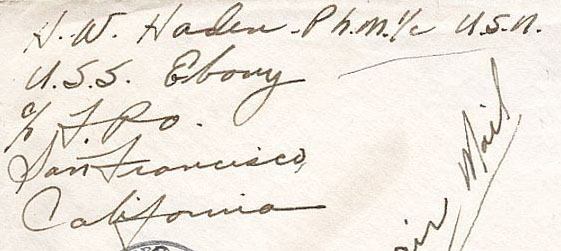 H. W. Haden - Ph.M. 1/c U.S.N.
U.S.S. Ebony
c/o F.P.O.
San Francisco,
California
Air Mail